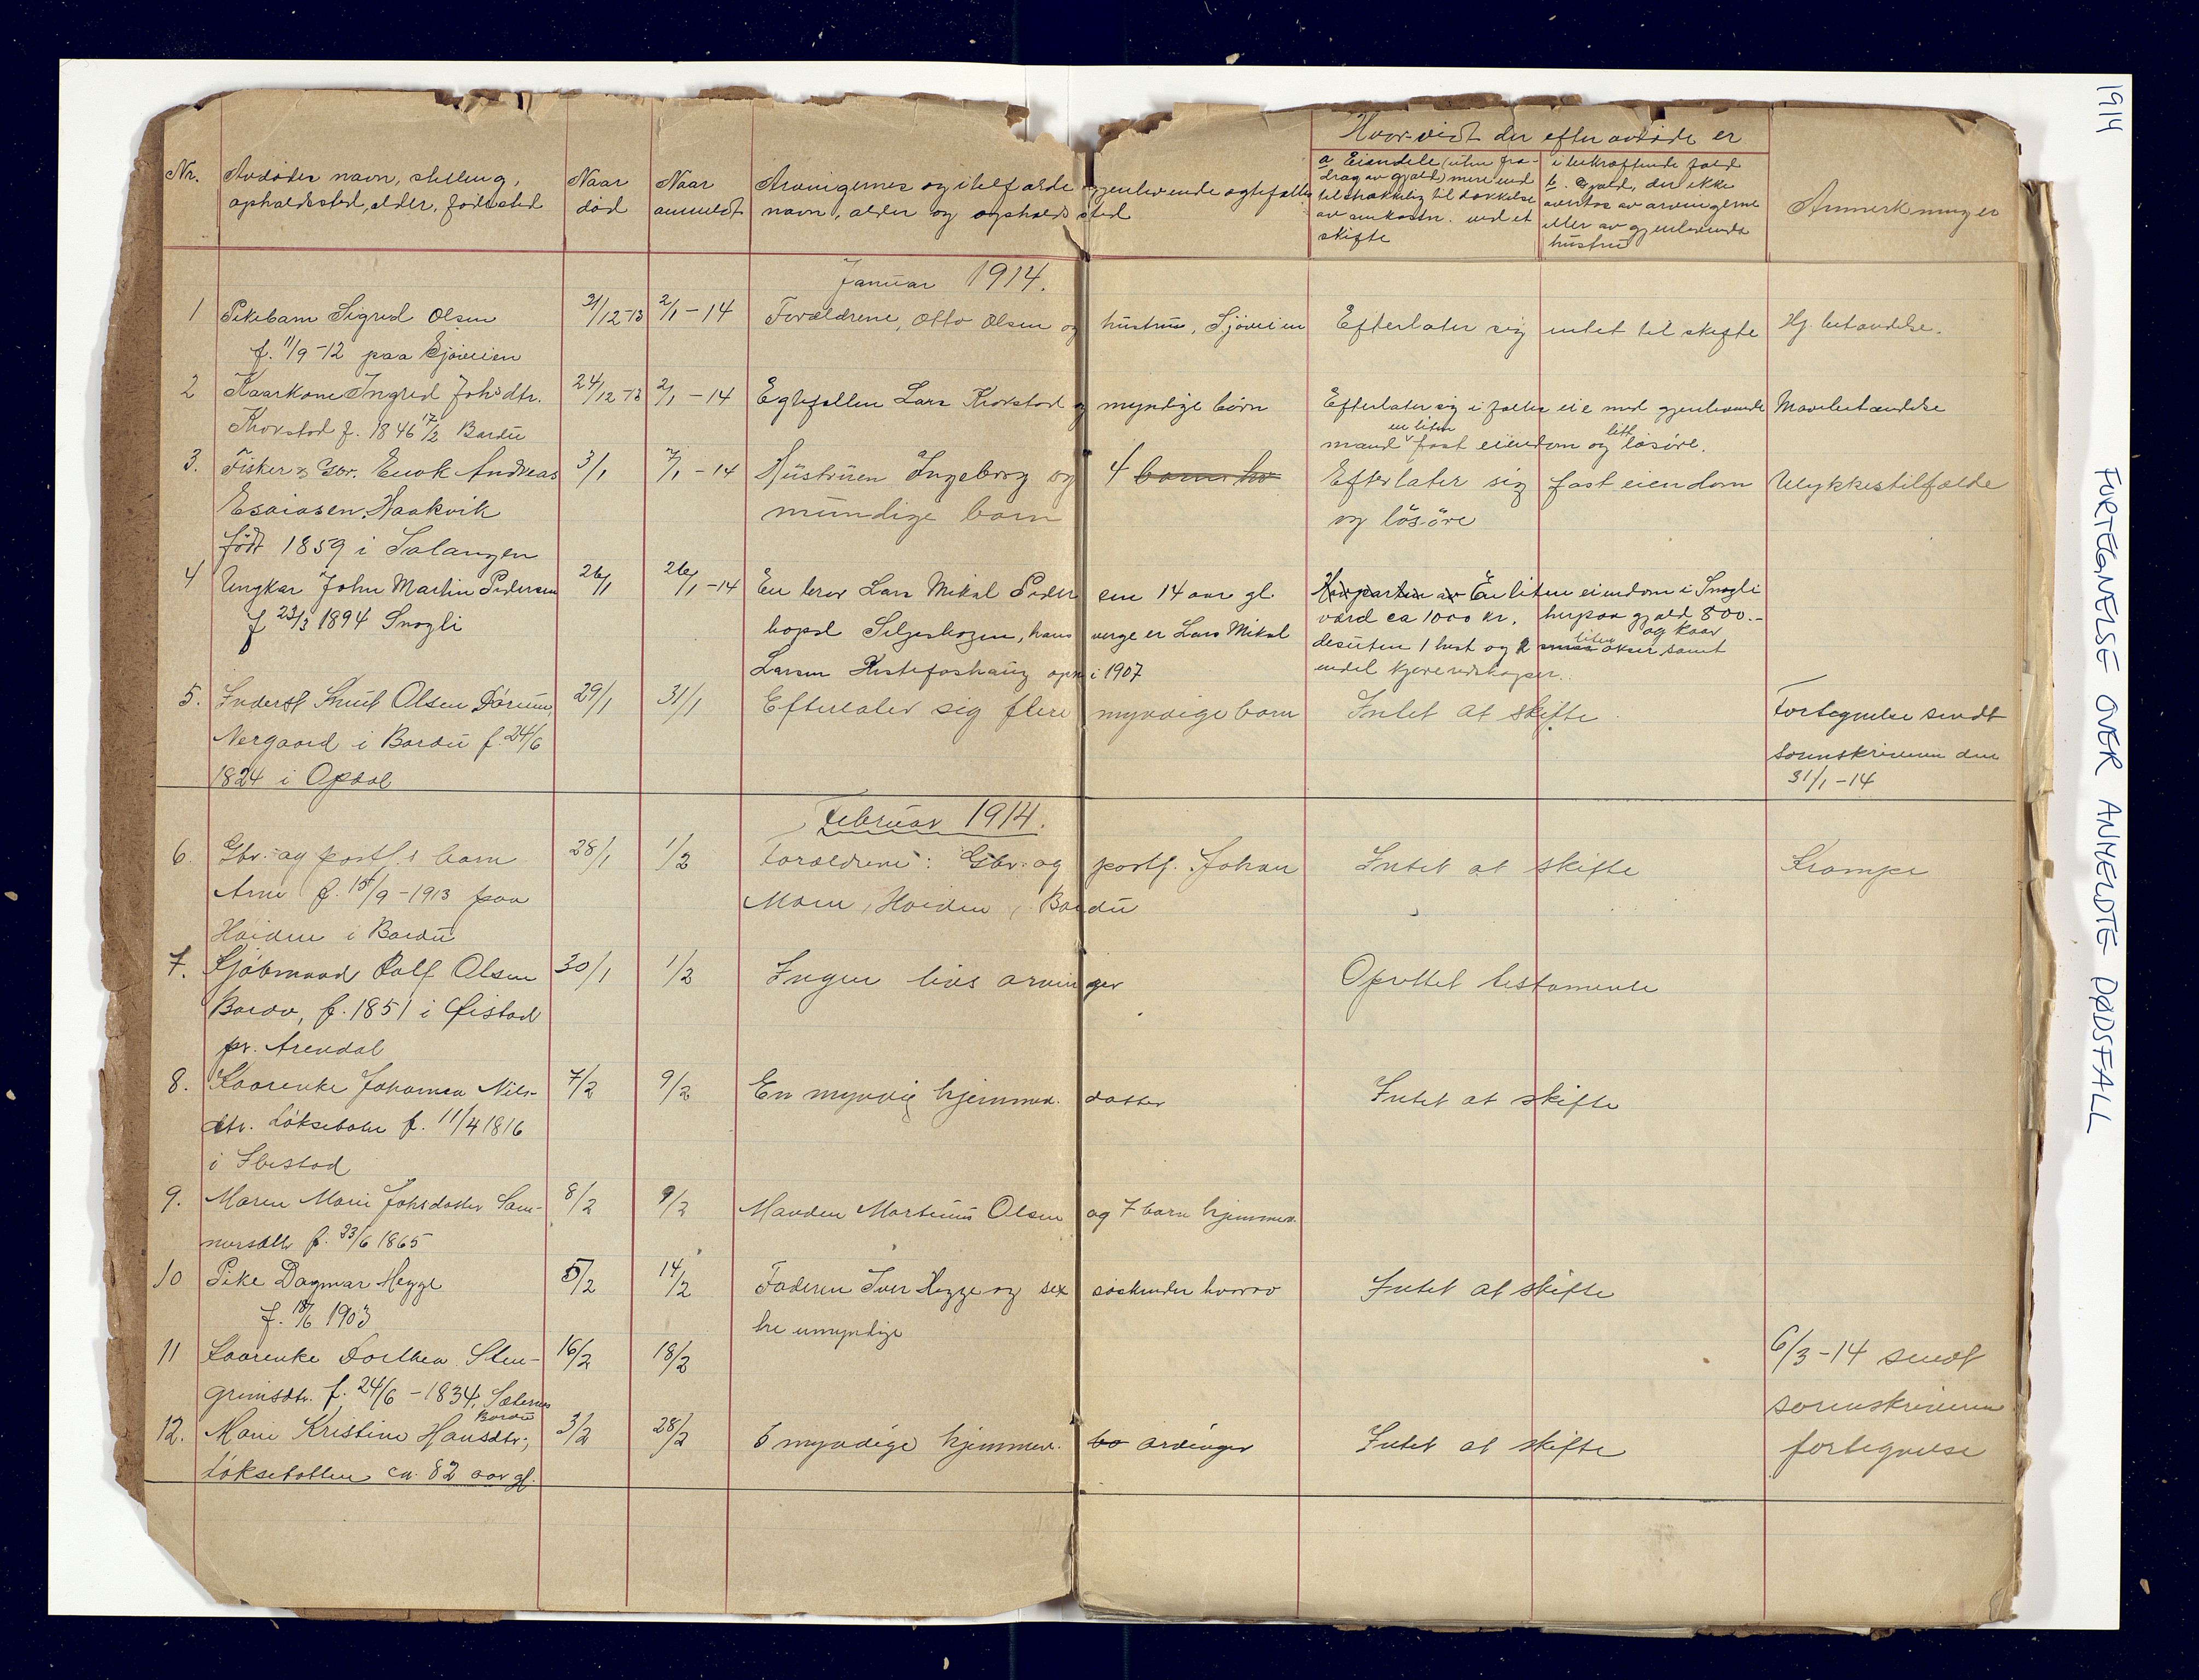 1914
FORTEGNELSE OVER ANMELDTE DØDSFALL
Hvorvidt der efter avdøde er
Nr. Avdødes navn, stilling, opholdssted, alder, fødested
Naar død
Naar anmeldt
Arvingernes og i tilfælde gjenlevende egtefælles navn, alder og opholdssted
a Eiendele (uten fradrag av gjæld) mere end tilstrækkelig til dækkelse av omkostn. ved et skifte
i bekræftende fald
b. Gjæld, der ikke overtas av arvingerne eller av gjenlevende hustru
Anmerkninger
Januar 1914.
1 Pikebarn Sigrid Olsen 31/12-13 2/1-14 Forældrene, Otto Olsen og hustru, Sjøveien Efterlater sig intet til skifte Hj. betændelse.
f. 11/9-12 paa Sjøveien
2 Kaarkone Ingrid Johsdtr. 24/12-13 2/1-14 Egtefellen Lars Krokstad og myndige börn Efterlater sig i fælles eie med gjenlevende Mavebetændelse
Krokstad f. 17/2 1846 Bardu mand en liten fast eiendom og litt lösöre.
3. Fisker & Gbr. Enok Andreas 3/1 7/1-14 Hustruen Ingeborg og 4 Efterlater sig fast eiendom Ulykkestilfælde
Esaiasen, Haakvik mundige barn og lösöre
født 1859 i Salangen
4 Ungkar John Martin Pedersen 26/1 26/1-14 En bror Lars Mikal Pedersen 14 aar gl. En liten eiendom i Snogli
f 23/3 1894 Snogli bopæl Seljeskogen, hans verge er Lars Mikal værd ca 1000 kr. herpaa gjæld 800.-
og kaar
Larsen Kistefoshaug opn i 1907 desuten 1 hest og 2 liten okser samt
endel kjøreredskaper.
5. Inderst Knut Olsen Dørum, 29/1 31/1 Efterlater sig flere myndige barn Intet at skifte Fortegnelse sendt
Nergaard i Bardu f. 24/6 sorenskriveren den
1824 i Opdal 31/1-14
Februar 1914.
6. Gbr. og postf.s barn 28/1 1/2 Forældrene: Gbr. og postf. Johan Intet at skifte Krampe
Arne f. 15/9-1913 paa Moen, Høiden, Bardu
Høiden i Bardu
7. Kjöbmand Rolf Olsen 30/1 1/2 Ingen livsarvinger Oprettet testamente
Bardu, f. 1851 i Øistad
pr. Arendal
8. Kaarenke Johanna Nils- 7/2 9/2 En myndig hjemmev. datter Intet at skifte
dtr. Löksebotn f. 11/4 1816
i Ibestad
9. Maren Marie Johsdatter Sam- 8/2 9/2 Manden Martinus Olsen og 7 barn hjemmev.
f. 23/6 1865
10 Pike Dagmar Hegge 5/2 14/2 Faderen Iver Hegge og sex söskender hvorav Intet at skifte
f. 1903 tre umyndige
11 Kaarenke Dorthea Sten- 16/2 18/2 6/3-14 sendt
grimsdtr. f. 24/6-1834, Sæternes sorenskriveren
Bardu
12. Marie Kristine Hansdtr., 3/2 28/2 5 myndige hjemmev. arvinger Intet at skifte fortegnelse
Löksebotten ca. 82 aar gl.